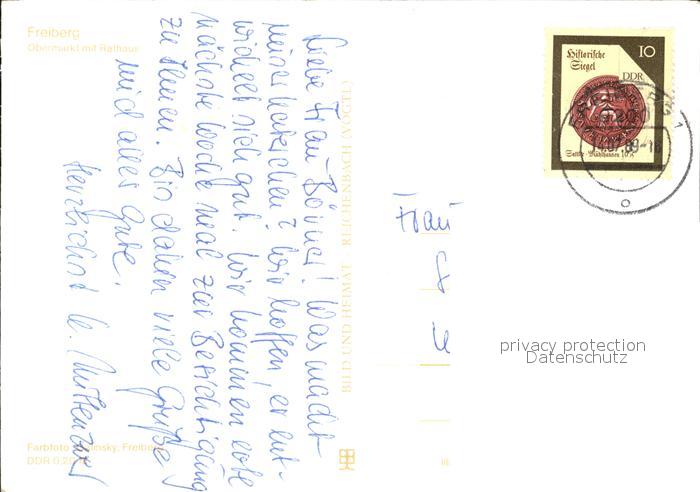 Freiberg
Obermarkt mit Rathaus
Liebe Frau Börner! Was macht
meine Kätzchen? Wir hoffen, er ent-
wickelt sich gut. Wir kommen evtl.
nächste Woche mal zur Besichtigung
zu Ihnen. Bis dahin viele Grüße
und alles Gute.
Herzlichst
BILD UND HEIMAT REICHENBACH (VOGTL)
Farbfoto Freiberg
DDR
Historische
Siegel
10
DDR
14.07.89
Frau
privacy protection
Datenschutz